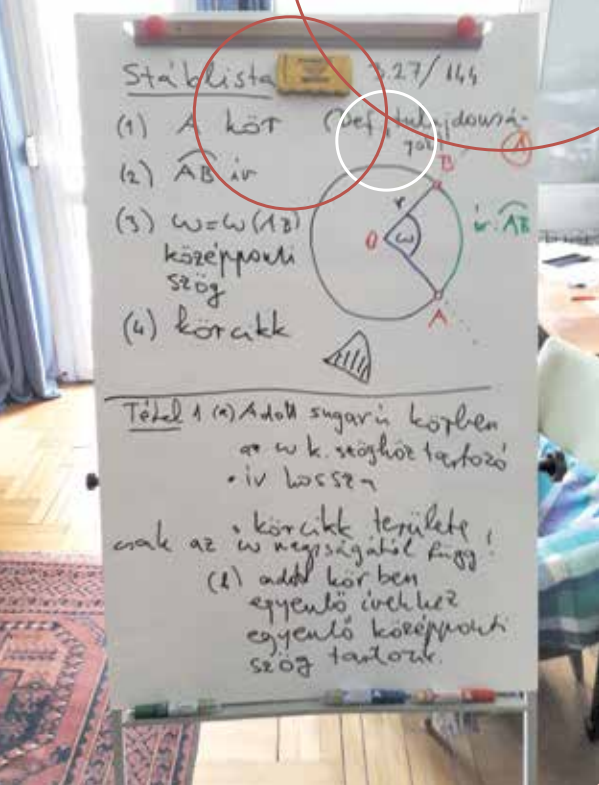 Stáblista 3.27/144
(1) A kör (Def, tulajdonsá-
gok)
(1)
(2) AB ív
(3) ω=ω(AB)
középponti
szög
(4) körcikk
B
r
O ω
ív: AB
A
Tétel 1 (a) Adott sugarú körben
az ω k. szöghöz tartozó
• ív hossza
• körcikk területe
csak az ω nagyságától függ!
(b) adott körben
egyenlő ívekhez
egyenlő középponti
szög tartozik.